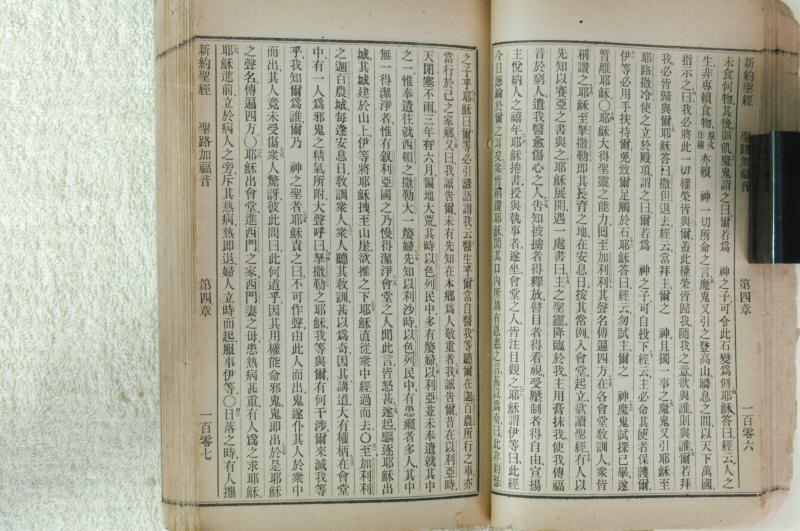 新約聖經 聖路加福音 第四章 一百零六
未食何物其後頗飢魔鬼謂之曰爾若為 神之子可令此石變為餅耶穌答曰經云人之
生非專賴食物 亦賴 神一切所命之言魔鬼又引之登高山瞬息之間以天下萬國
指示之曰我必將此一切權榮皆與爾蓋此權榮皆歸我隨我之意欲與誰則與誰爾若拜
我必皆歸與爾耶穌答曰撒但退去經云當拜主爾之 神且獨一事之魔鬼又引耶穌至
耶路撒冷使之立於殿頂謂之曰爾若為 神之子可自投下經云主必命其使者保護爾
伊等必用手扶持爾免致爾足觸於石耶穌答曰經云勿試主爾之 神魔鬼試探已畢遂
暫離耶穌〇耶穌大得聖靈之能力回至加利利其聲名傳遍四方在各會堂教訓人衆皆
稱讚之耶穌至拏撒勒即其長育之地在安息日按其常例入會堂起立欲讀聖經有人以
先知以賽亞之書與之耶穌展開遇一處書曰主之聖靈降臨於我主用膏抹我使我傳福
音於窮人遣我醫愈傷心之人告知被擄者得釋放瞽目者得看視受壓制者得自由宣揚
主悅納人之禧年耶穌捲書授與執事者遂坐會堂之人皆注目觀之耶穌謂伊等曰此經
今日應驗於爾之耳矣衆皆稱讚耶穌聞其口內所講有恩惠之言甚以為奇曰此非約瑟
之子乎耶穌曰爾等必引諺語謂我云醫生乎爾當自醫我等聽爾在迦百農所行之事亦
當行於己之家鄉又曰我誠告爾未有先知在本鄉為人敬重者我誠告爾昔在以利亞時
天閉塞不雨三年有六月徧地大荒其時以色列民中多有嫠婦以利亞並未奉遣就其中
之一惟奉遣往就西頓之撒勒大一嫠婦先知以利沙時以色列民中有患癩者多人其中
無一得潔淨者惟有叙利亞國之乃慢得潔淨會堂之人聞此言皆怒甚遂起驅逐耶穌出
城其城建於山上伊等將耶穌拽至山崖欲推之下耶穌直從衆中經過而去〇至加利利
之迦百農城每逢安息日教訓衆人衆人聽其教訓甚以為奇因其講道大有權柄在會堂
中有一人為邪鬼之精氣所附大聲呼曰拏撒勒之耶穌我等與爾有何干涉爾來滅我等
乎我知爾為誰爾乃 神之聖者耶穌責之曰不可作聲由此人而出鬼遂仆其人於衆中
而出其人竟未受傷衆人驚訝彼此問曰此何道乎因其用權能命邪鬼鬼即出於是耶穌
之聲名傳遍四方〇耶穌出會堂進西門之家西門妻之母患熱病甚重有人為之求耶穌
耶穌進前立於病人之旁斥其熱病熱即退婦人立時而起服事伊等〇日落之時有人攜
新約聖經 聖路加福音 第四章 一百零七